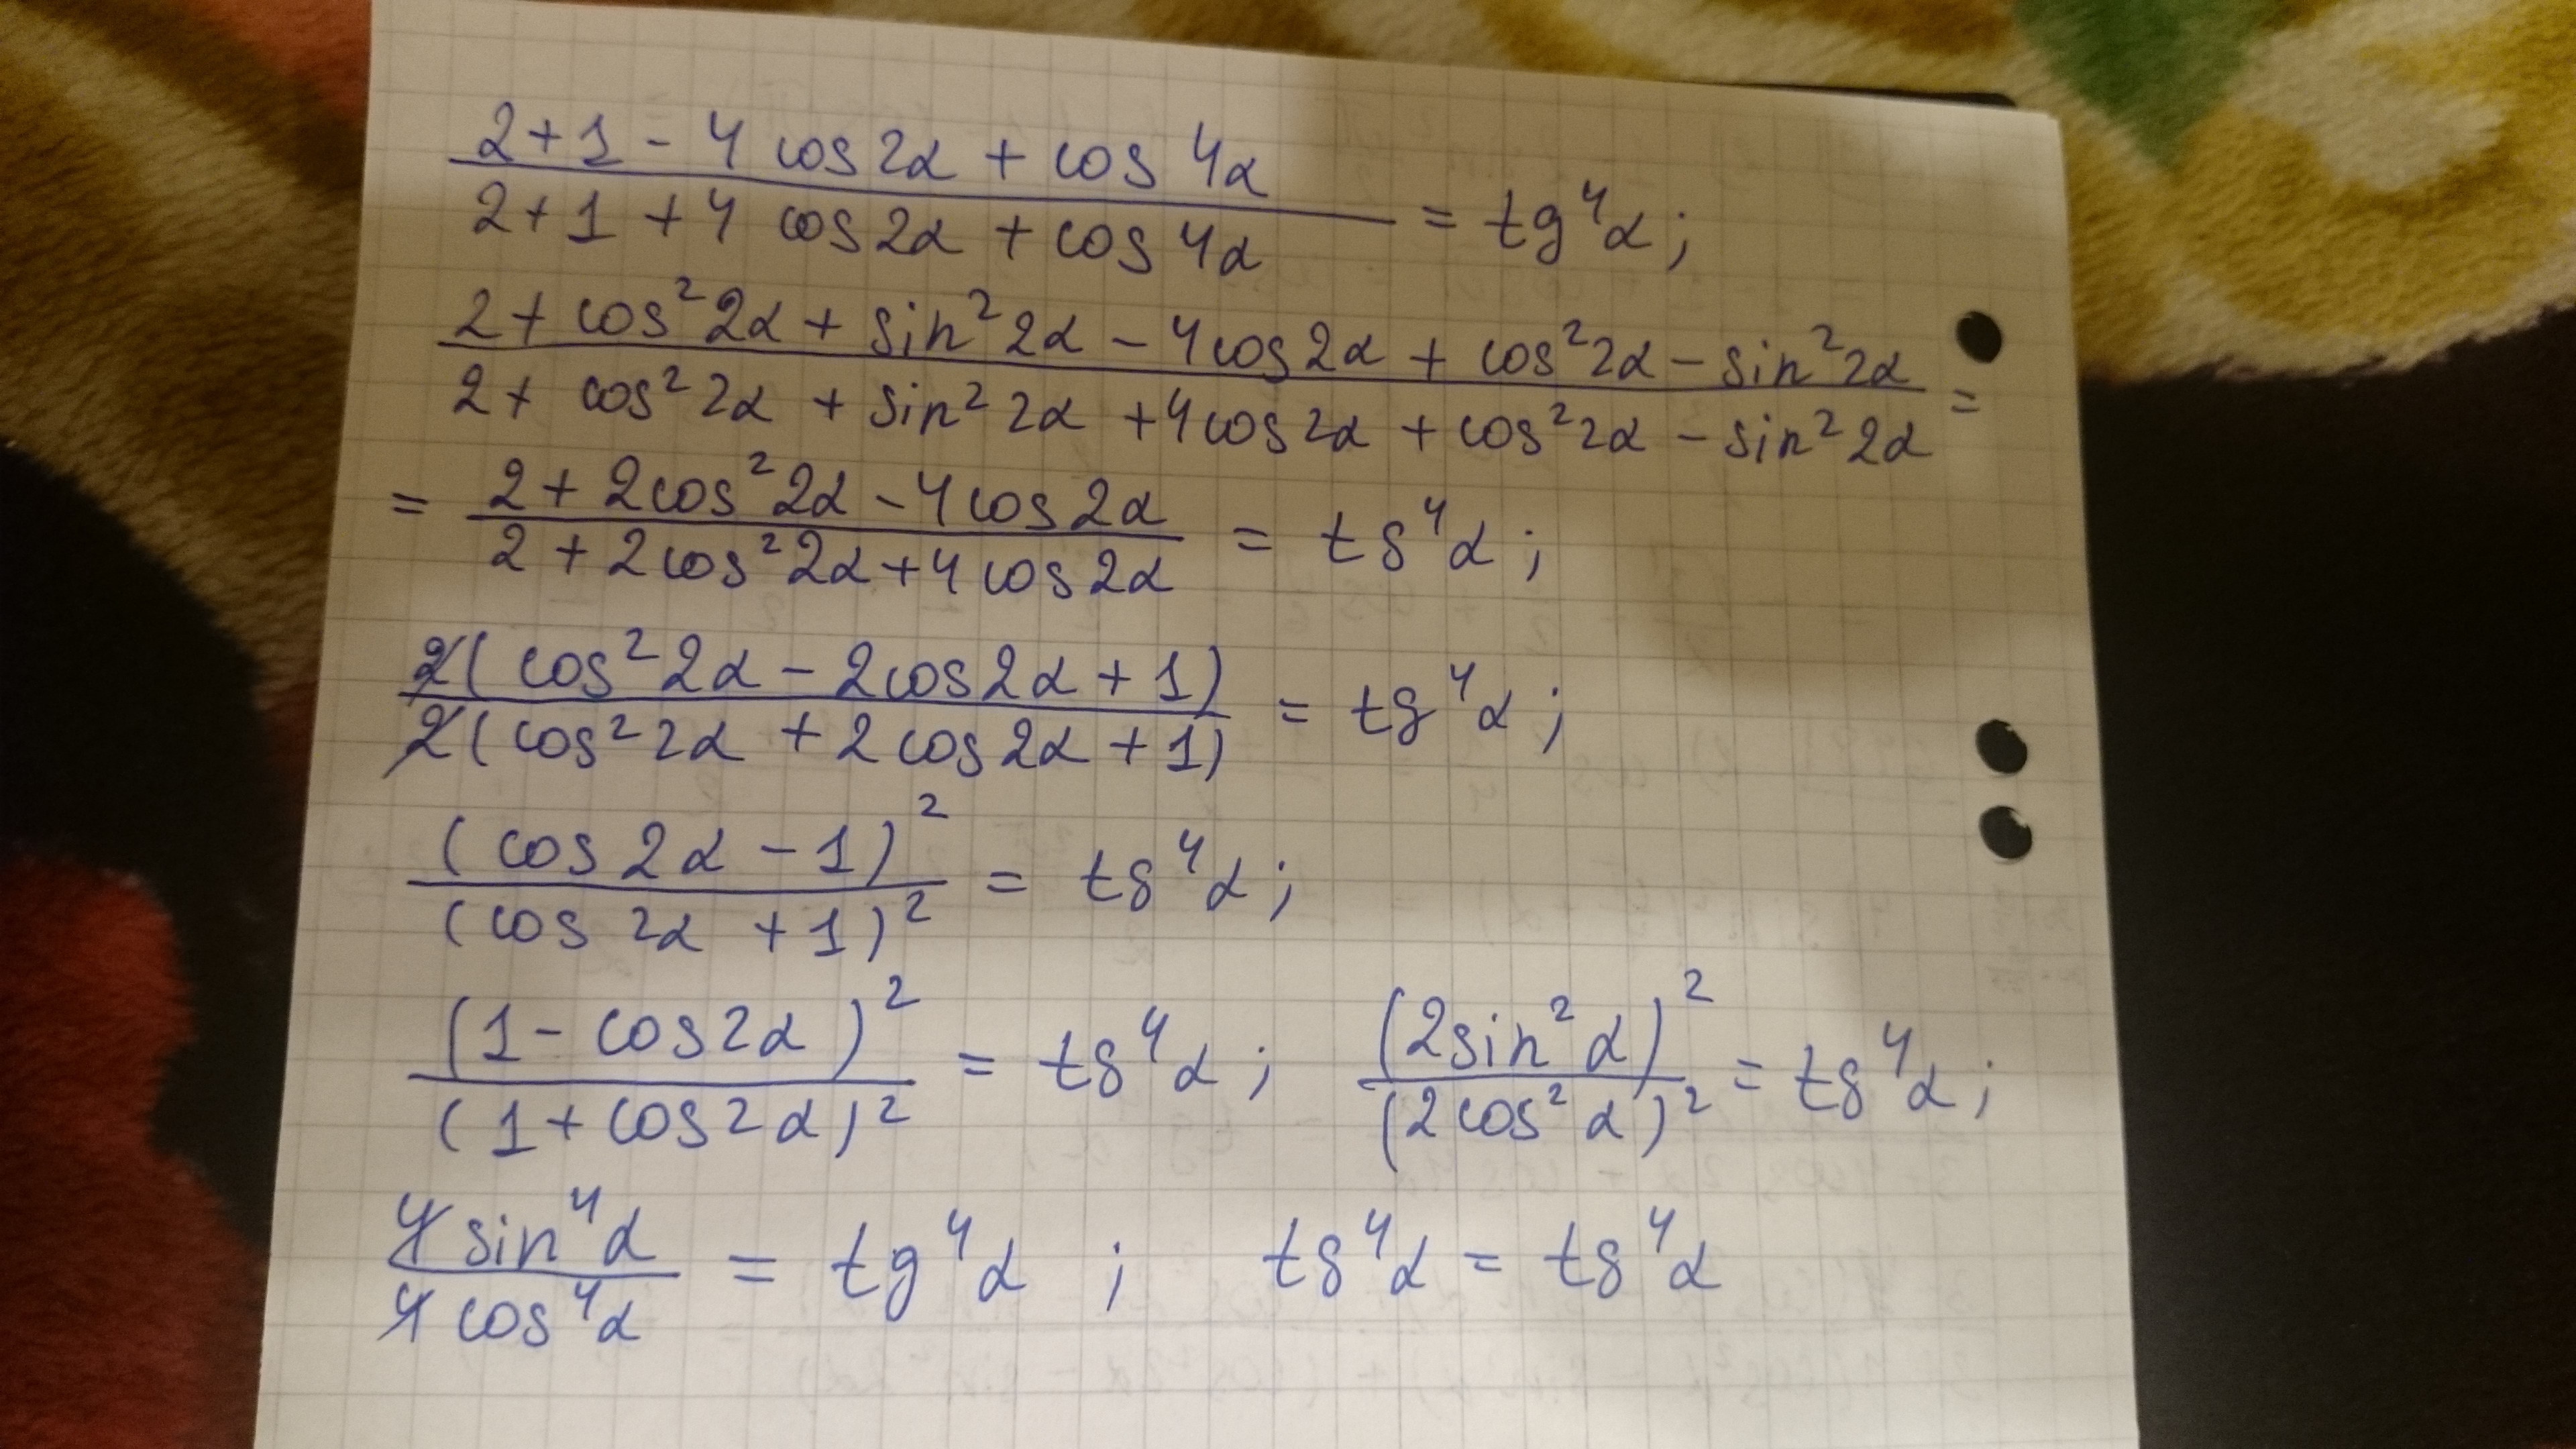 (2+1 - 4 cos 2α + cos 4α)/(2+1 + 4 cos 2α + cos 4α) = tg⁴α;
(2 + cos² 2α + sin² 2α - 4 cos 2α + cos² 2α - sin² 2α)/(2 + cos² 2α + sin² 2α + 4 cos 2α + cos² 2α - sin² 2α) =
= (2 + 2cos² 2α - 4 cos 2α)/(2 + 2cos² 2α + 4 cos 2α) = tg⁴α;
2(cos² 2α - 2cos 2α + 1)/2(cos² 2α + 2 cos 2α + 1) = tg⁴α;
(cos 2α - 1)²/(cos 2α + 1)² = tg⁴α;
(1 - cos 2α)²/(1 + cos 2α)² = tg⁴α; (2sin² α)²/(2cos² α)² = tg⁴α;
4 sin⁴α/4 cos⁴α = tg⁴α ; tg⁴α = tg⁴α